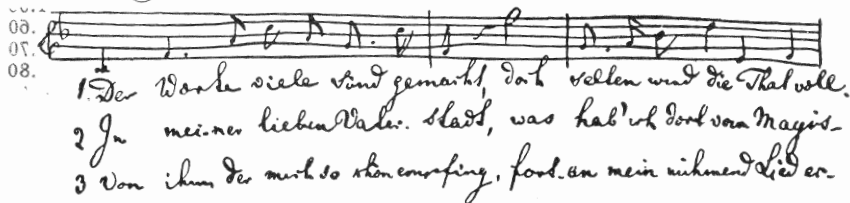 06.
07.
08.
1. Der Worte viele sind gemacht, doch selten wird die That voll.
2 In mei-ner lieben Vater. stadt, was hab' ich dort vom Magis-
3 Von ihm der mich so schön empfing, fort-an mein rühmend Lied er-